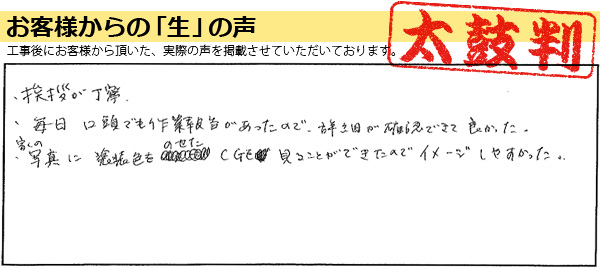 お客様からの「生」の声
太鼓判
工事後にお客様から頂いた、実際の声を掲載させていただいております。
・挨拶が丁寧。
・毎日 口頭でも作業報告があったので、詳細が確認できて良かった。
・家の写真に塗装色をのせたCGを見ることができたのでイメージしやすかった。